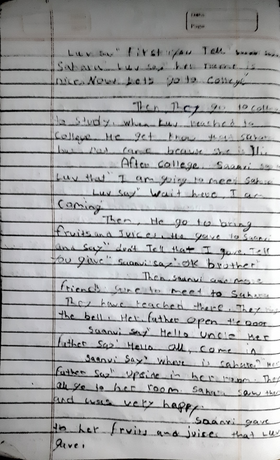 Luv say" First you Tell
Sahara" Luv say her name is
nice. Now lets go to College
Then They go to
to study. when Luv reached to
College. He get know that
has not came because she is ill.
After College. Saanvi
Luv that" I am going to meet
Luv say" Wait here I am
coming
Then, He go to bring
fruits and Juice. He gave to Saanvi
and say" don't Tell that I gave. Tell
You gave" Saanvi say" ok brother"
Then Saanvi and
Friends gone to meet to
They have reached there. They
the bell. Her father open the door
Saanvi say" Hello Uncle" her
father say" Hello all, come in
Saanvi say" where is
Father say" Upside in her room. They
all go to her room
and was very happy
Saanvi gave
to her fruits and juice that Luv
gave.